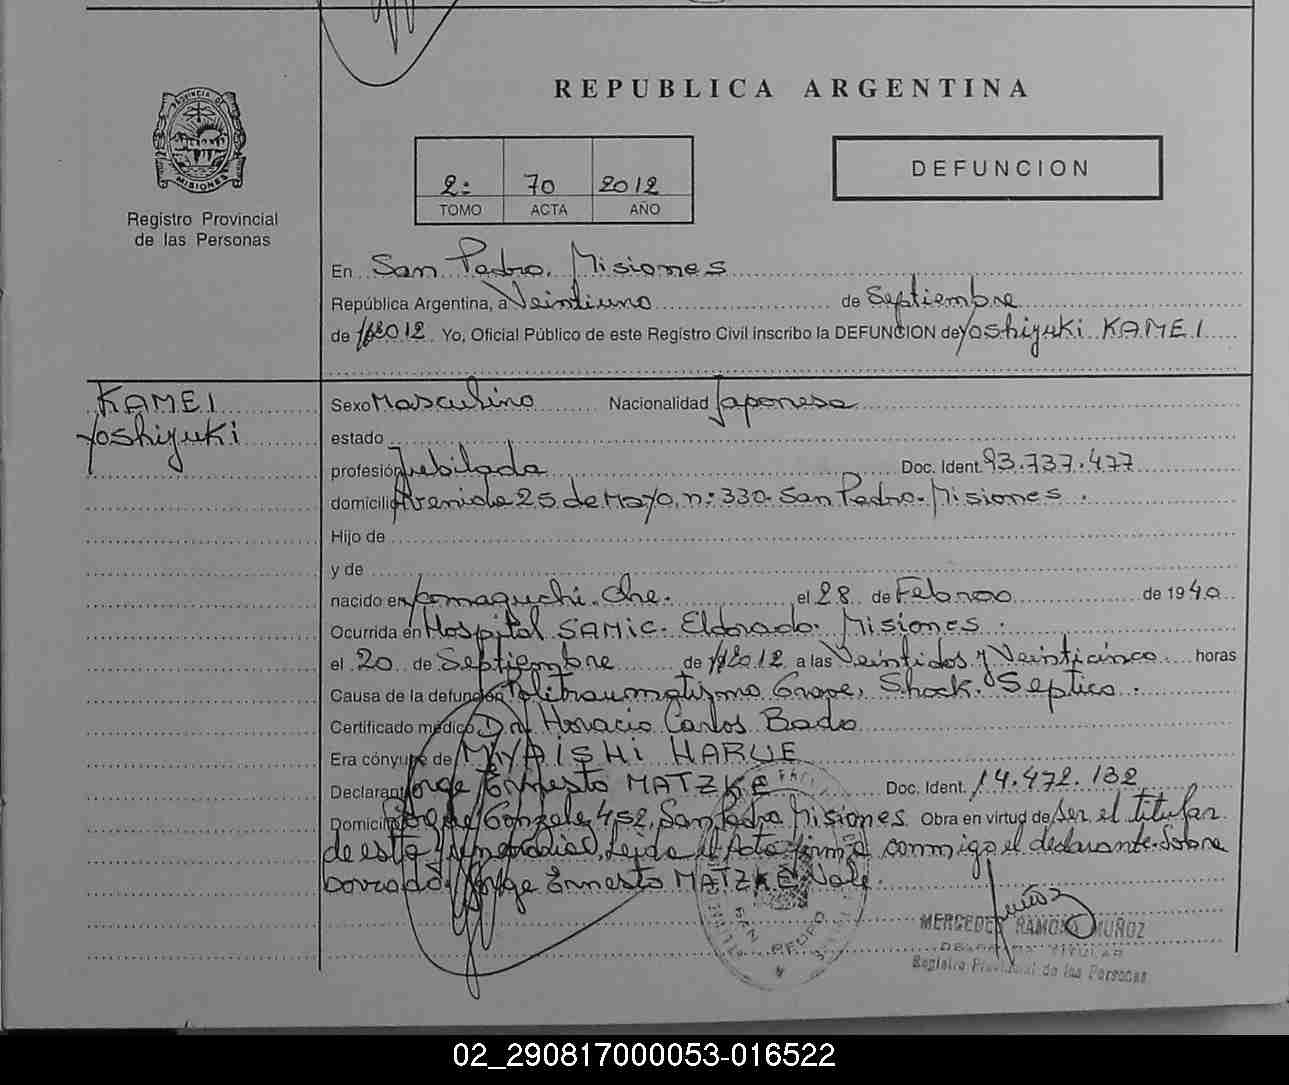 REPUBLICA ARGENTINA
PROVINCIA DE
MISIONES
Registro Provincial
de las Personas
2: 70 2012
TOMO ACTA AÑO
DEFUNCION
En San Pedro. Misiones
República Argentina, a Veintiuno de Septiembre
de 2012. Yo, Oficial Público de este Registro Civil inscribo la DEFUNCION de Yoshiyuki KAMEI
KAMEI
Yoshiyuki
Sexo Masculino Nacionalidad Japonesa
estado
profesión Jubilada Doc. Ident. 93.737.477
domicilio Avenida 25 de Mayo, n: 330. San Pedro. Misiones.
Hijo de
y de
nacido en Yamaguchi. el 28 de Febrero de 1940
Ocurrida en Hospital SAMIC. Eldorado. Misiones.
el 20 de Septiembre de 2012 a las Veintidos y Veinticinco horas
Causa de la defunción Politraumatismo Grave, Shock. Septico.
Certificado médico Dr. Horacio Carlos Bado
Era cónyuge de MIYAISHI HARUE
Declarante Jorge Ernesto MATZKE Doc. Ident. 14.472.132
Domicilio Gonzales 452, San Pedro Misiones Obra en virtud de ser el titular
de esta Leida el Acta firma conmigo el declarante. Sobre
borrado: Jorge Ernesto MATZKE Vale.
SAN PEDRO
MERCEDES RAMONA MUÑOZ
TITULAR
Registro Provincial de las Personas
02_290817000053-016522